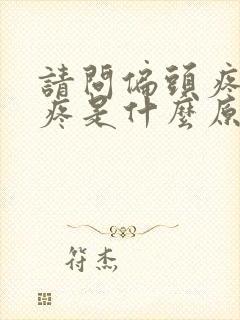 請問偏頭疼
疼是什麼原
符杰